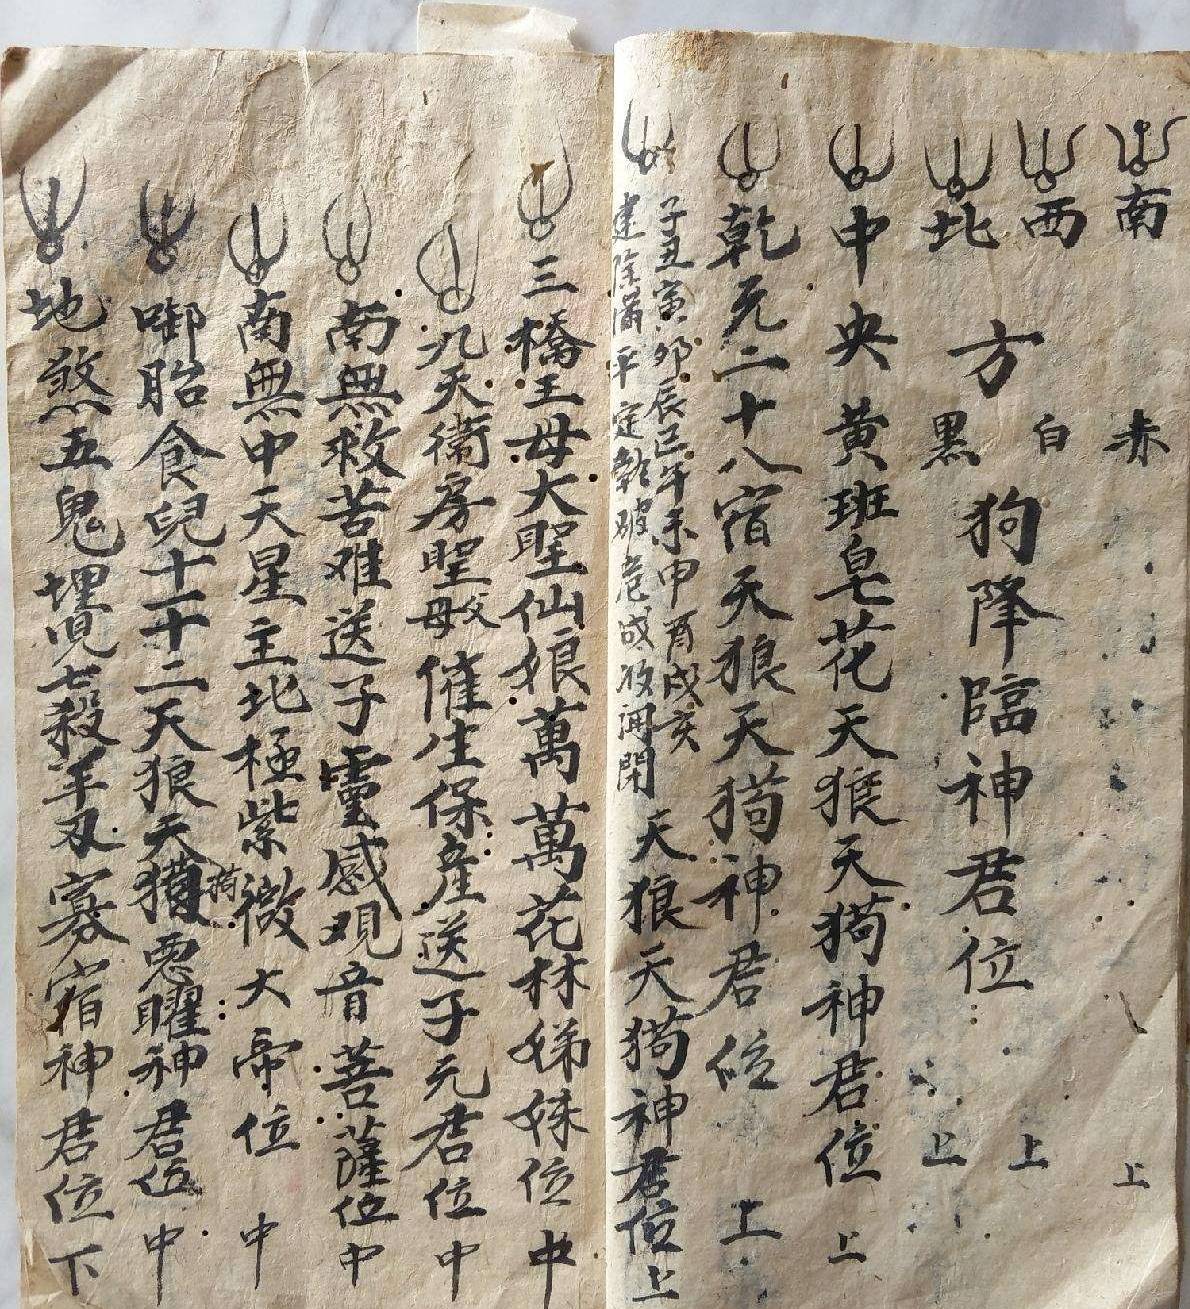 南 赤 上
西 白 上
北 方 黑 狗降臨神君位 上
中央黄班皂花天狼天猗神君位 上
乾元二十八宿天狼天猗神君位 上
子丑寅卯辰巳午未申酉戌亥
建除满平定執破危成收開閉 天狼天猗神君位上
三橋王母大聖仙娘萬萬花林娣妹位 中
九天衛房聖父母催生保産送子元君位 中
南無救苦难送子靈感观音菩薩位 中
南無中天星主北極紫微大帝位 中
啣胎食兒十一十二天狼天猗悪曜神君位 中
地煞五鬼埋児七殺羊刃寡宿神君位 下